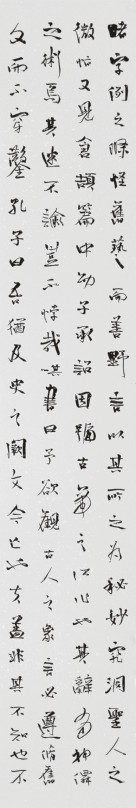 睹字例之條怪舊藝而善野言以其所之為秘妙究洞聖人之
微恉又見倉頡篇中幼子承詔因號古帝之所作也其辭有神僊
之術焉其迷不諭豈不悖哉書曰予欲觀古人之象言必遵脩舊
文而不穿鑿孔子曰吾猶及史之闕文今亡也夫蓋非其不知也不